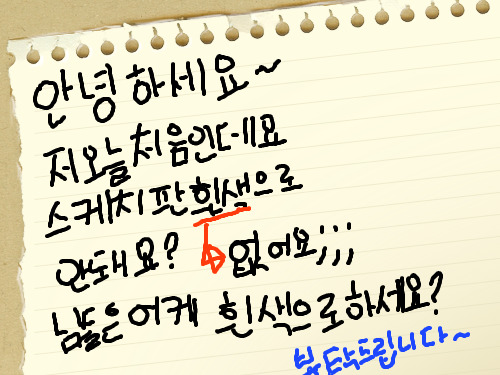 안녕하세요~
저오늘처음인데요
스케치판흰색으로
안돼요? 없어요;;;
남들은어케 흰색으로하세요?
부탁드립니다~